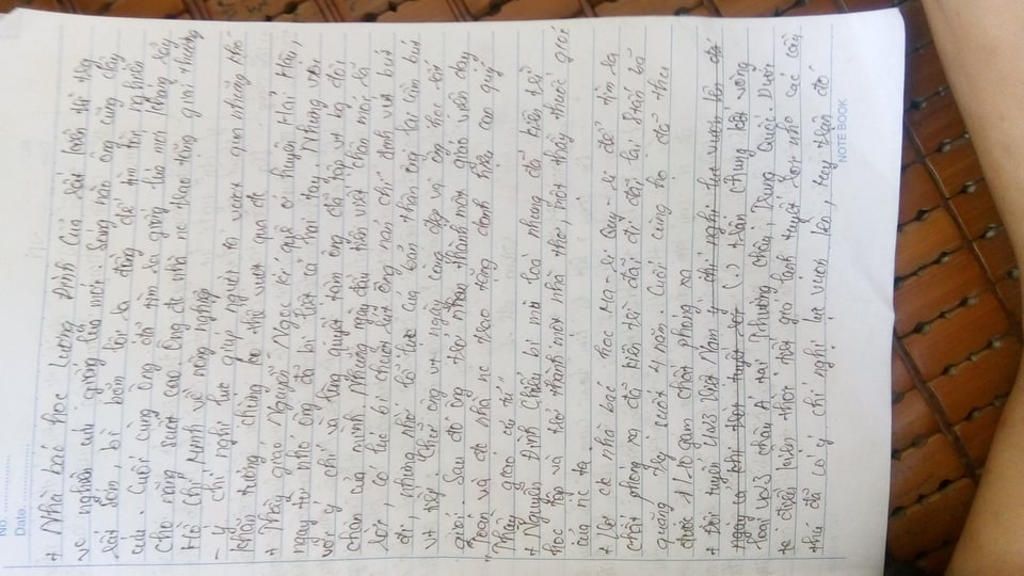 No. ............
Date. ............
+ Nhà bác học Lương Định Của sau bao lần thí thầy
về nghiên cứu giống lúa mới. Sáng nào ông cũng dậy
sớm, bì bõm lội ra đồng để tìm tòi, nghiên
cứu. Cuối cùng ông đã tìm ra giống lúa mới mang lại
cho năng suất cao. Ông đc nhà nc trao tặng giải thưởng
Hồ Chí Minh về nông nghiệp
- Ý chí nghị lực giúp người ta vượt qua những khó
khăn tưởng chừng ko thể vượt qua đc
+ Thầy giáo Nguyễn Ngọc Kí quê ở huyện Hải Hậu,
ngay từ nhỏ ông đã bị liệt cả hai tay. Nhưng với
với ý chí và lòng quyết tâm ông đã tập viết bằng đôi
chân của mình. Những ngày đầu tiên viết chân mỏi, rã
rời, có lúc bị chuột rút. Ông nản chí định vứt bút
đi, nhưng nhờ nỗ lực của bản thân ông lại cầm bút
và viết. Chữ ông viết ngày càng đẹp và ông học rất
giỏi. Sau đó ông trở thành một giáo viên dạy
toán và đc nhà nc trao tặng danh hiệu cao quý
"Thầy giáo ưu tú"
+ Nguyễn Đình Chiểu bị mù loà nhưng đã kiên trì
học tập và trở thành một nhà thơ, một thầy thuốc giỏi
của nc ta.
+ Vợ ck nhà bác học Ma-ri Quy-ri để tìm ra
chất phóng xạ đã kiên trì đãi đi đãi lại 8 tấn bã
quặng suốt 4 năm. Cuối cùng họ đã thu
được 1/10 gam chất phóng xạ
+ Đội tuyển U23 Việt Nam ý chí nghị lực vượt lên đó
ngay cả khi thời tuyết (.) trận chung kết vòng
loại U23 châu Á tại Thường Châu, Trung Quốc. Dưới
điều kiện thời tiết giá lạnh tuyết rơi nhờ các cầu
thủ đã có ý chí nghị lực vươn lên, tinh thần đó
NOTE BOOK